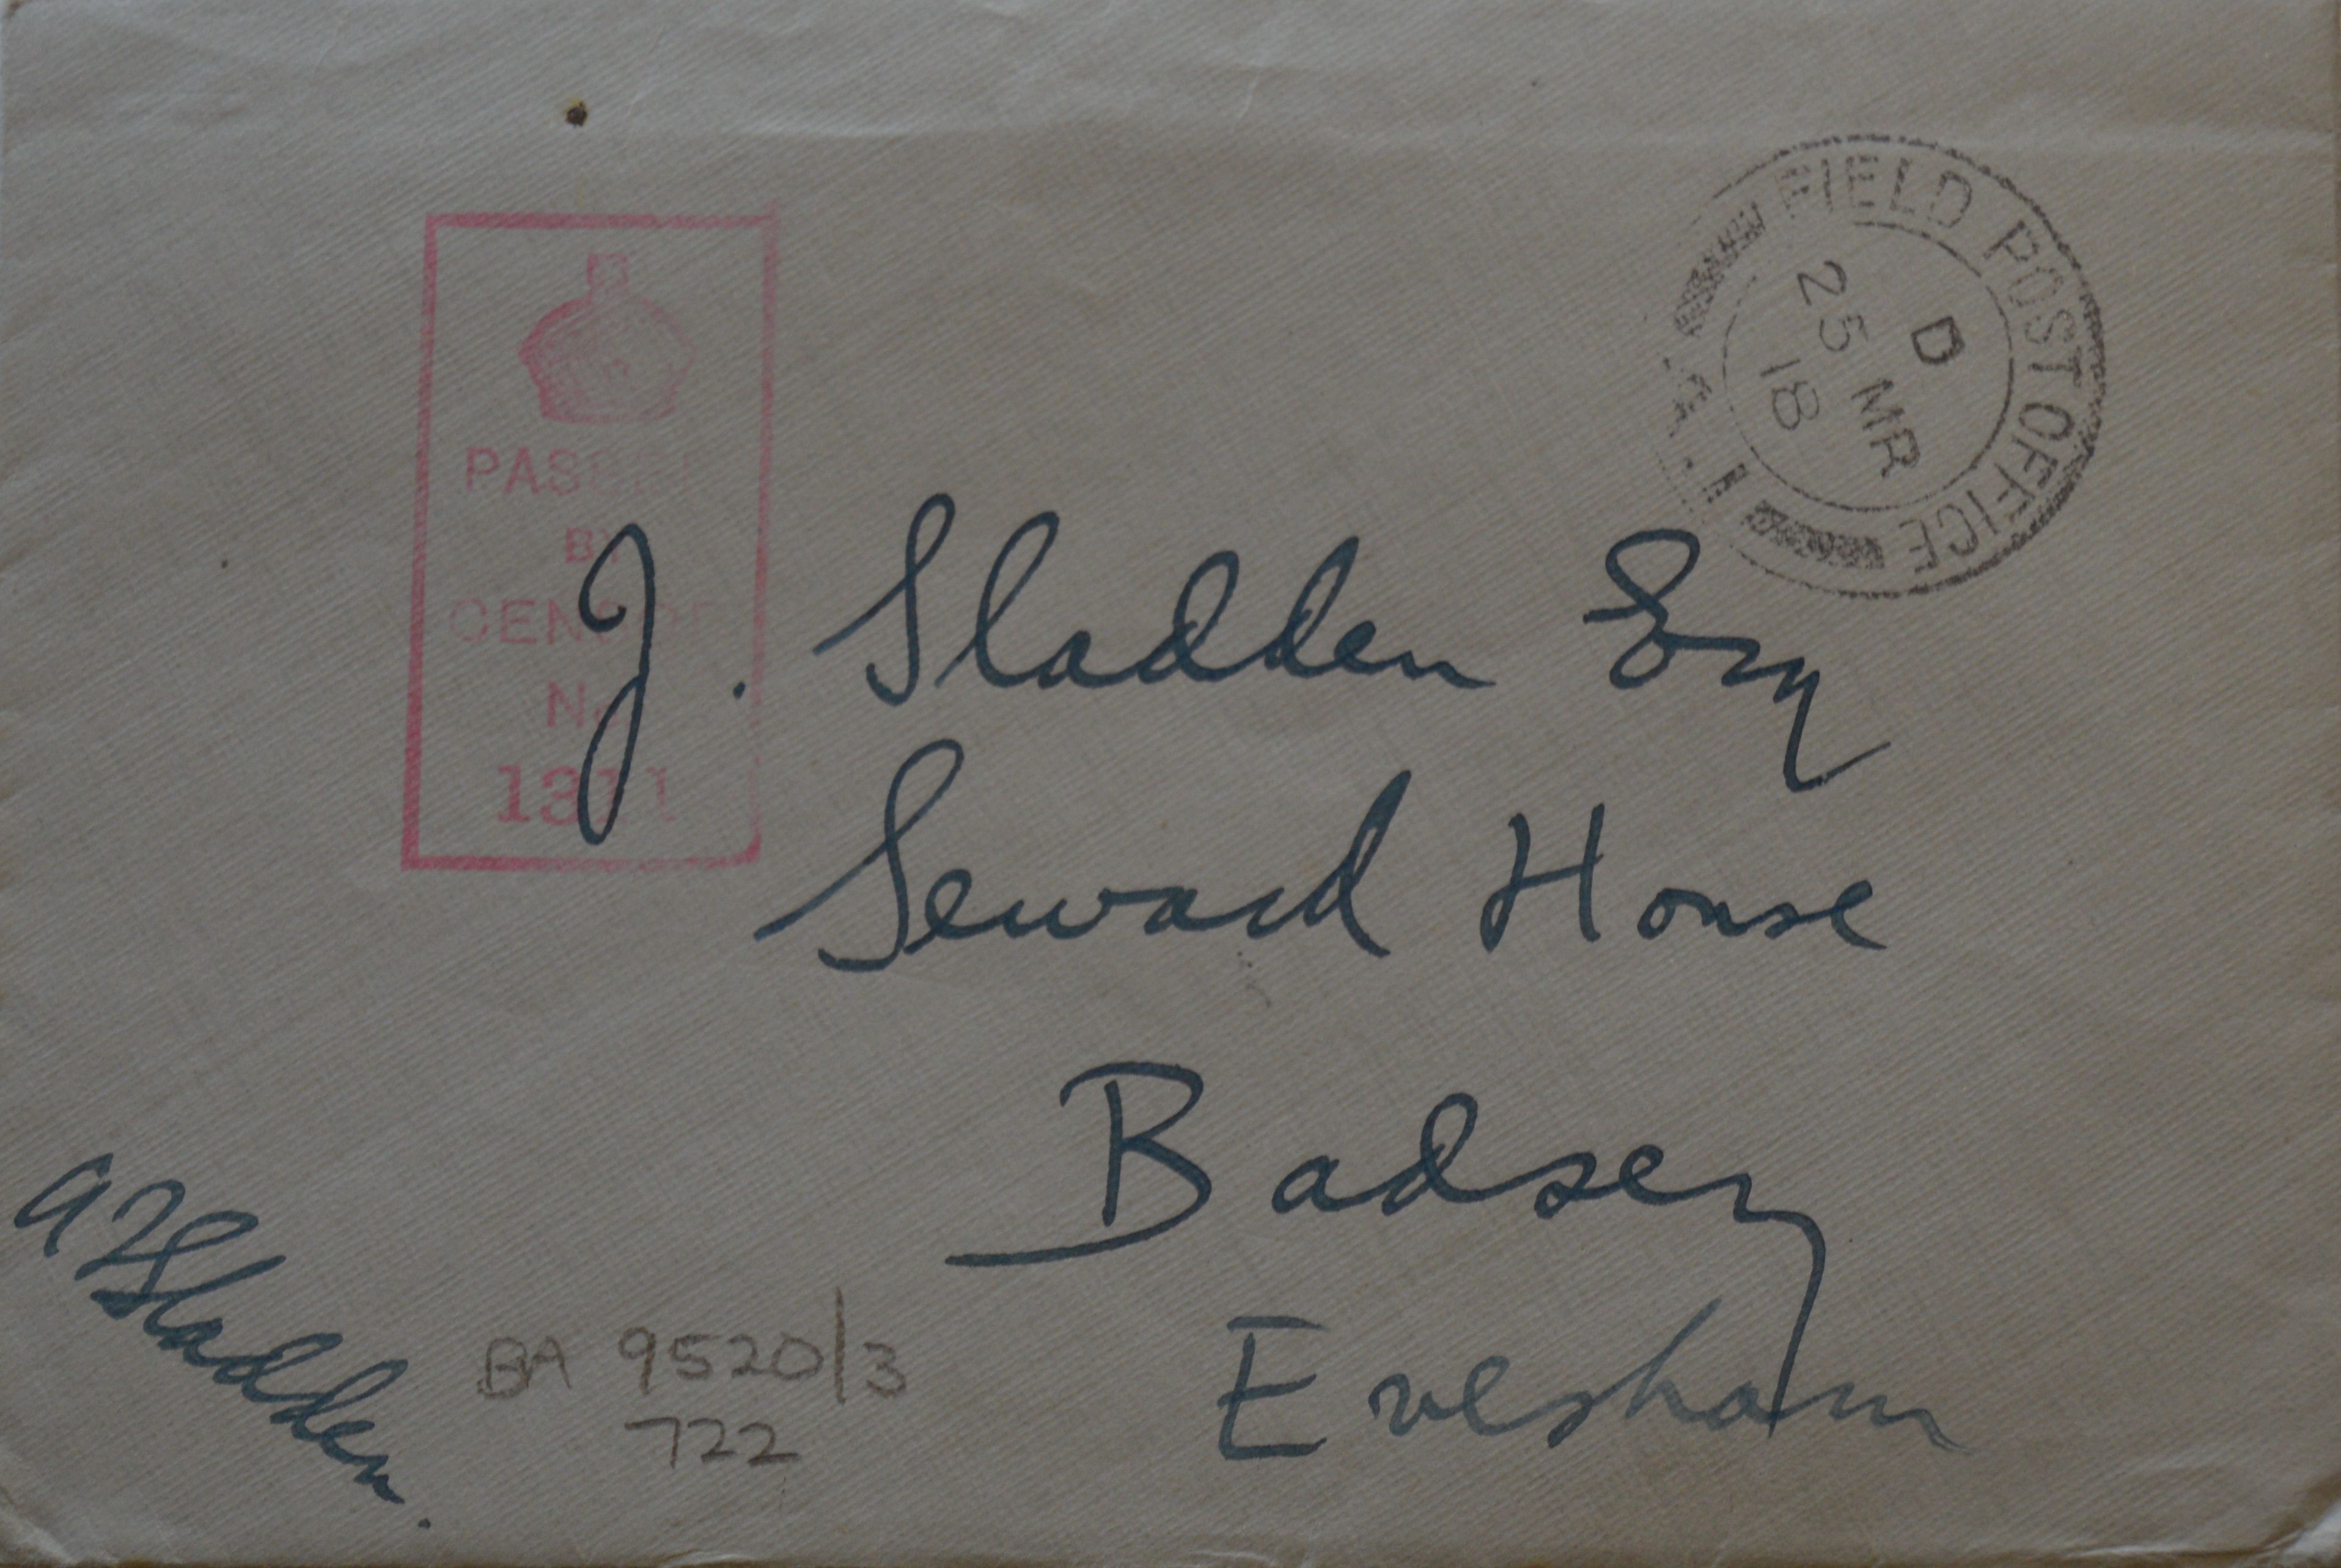 FIELD POST OFFICE
D
25 MR
18
PASSED
BY
CENSOR
No
J. Sladden Esq
Seward House
Badsey
Evesham
A F Sladden.
BA 9520/3
722